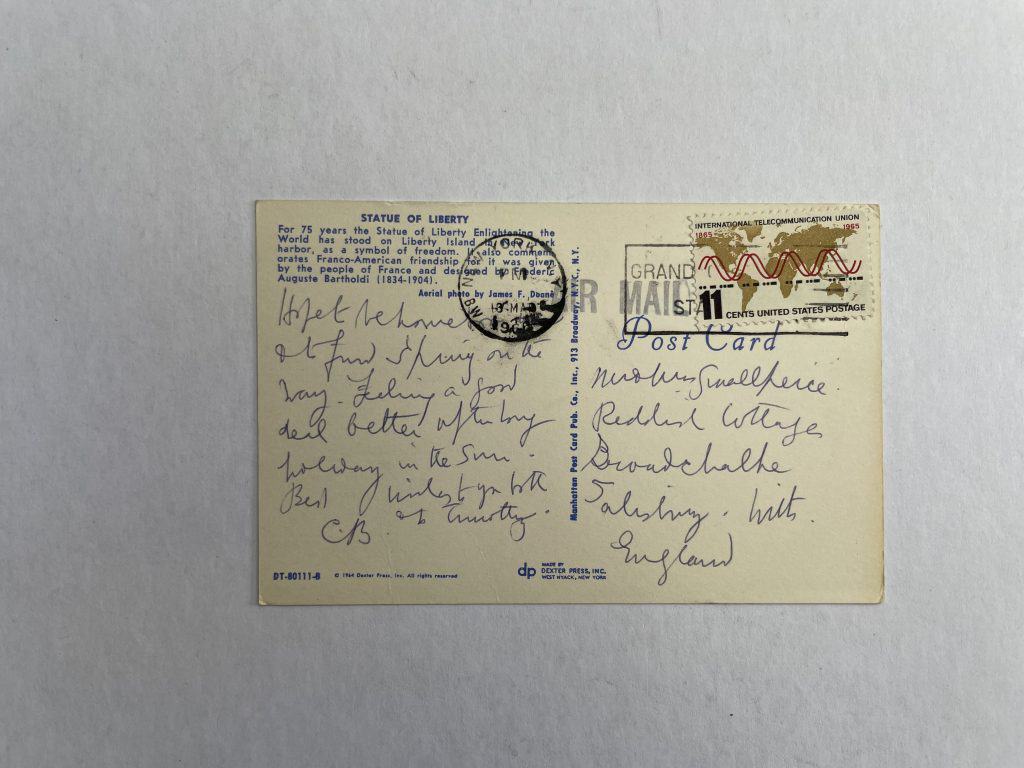 STATUE OF LIBERTY
For 75 years the Statue of Liberty Enlightening the
World has stood on Liberty Island in New York
harbor, as a symbol of freedom. It also commem-
orates Franco-American friendship for it was given
by the people of France and designed by Frederic
Auguste Bartholdi (1834-1904).
Aerial photo by James F. Doane
Hope to be home
& to find Spring on the
way. Feeling a good
deal better after long
holiday in the Sun.
Best wishes to you both
& to Timothy.
CB
DT-80111-B
© 1964 Dexter Press, Inc. All rights reserved
Manhattan Post Card Pub. Co., Inc., 913 Broadway, N.Y.C., N.Y.
dp
MADE BY
DEXTER PRESS, INC.
WEST NYACK, NEW YORK
NEW YORK, N.Y.
PM
MAR
AIR MAIL
GRAND
STA
INTERNATIONAL TELECOMMUNICATION UNION
1865 1965
11 CENTS UNITED STATES POSTAGE
Post Card
Mr & Mrs Smallpeice
Reddish Cottage
Broadchalke
Salisbury. Wilts.
England